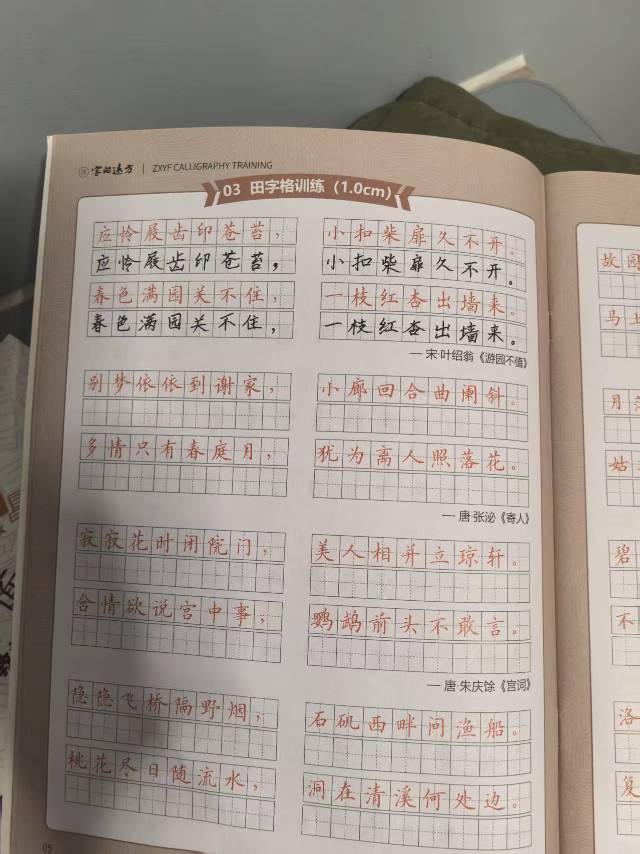 字的远方 | ZXYF CALLIGRAPHY TRAINING
03 田字格训练（1.0cm）
应怜屐齿印苍苔，
应怜屐齿印苍苔，
小扣柴扉久不开。
小扣柴扉久不开。
春色满园关不住，
春色满园关不住，
一枝红杏出墙来。
一枝红杏出墙来。
— 宋·叶绍翁《游园不值》
别梦依依到谢家，
小廊回合曲阑斜。
多情只有春庭月，
犹为离人照落花。
— 唐·张泌《寄人》
寂寂花时闭院门，
美人相并立琼轩。
含情欲说宫中事，
鹦鹉前头不敢言。
— 唐·朱庆馀《宫词》
隐隐飞桥隔野烟，
石矶西畔问渔船。
桃花尽日随流水，
洞在清溪何处边。
05
故园
马上
月
姑
碧
不
洛
复